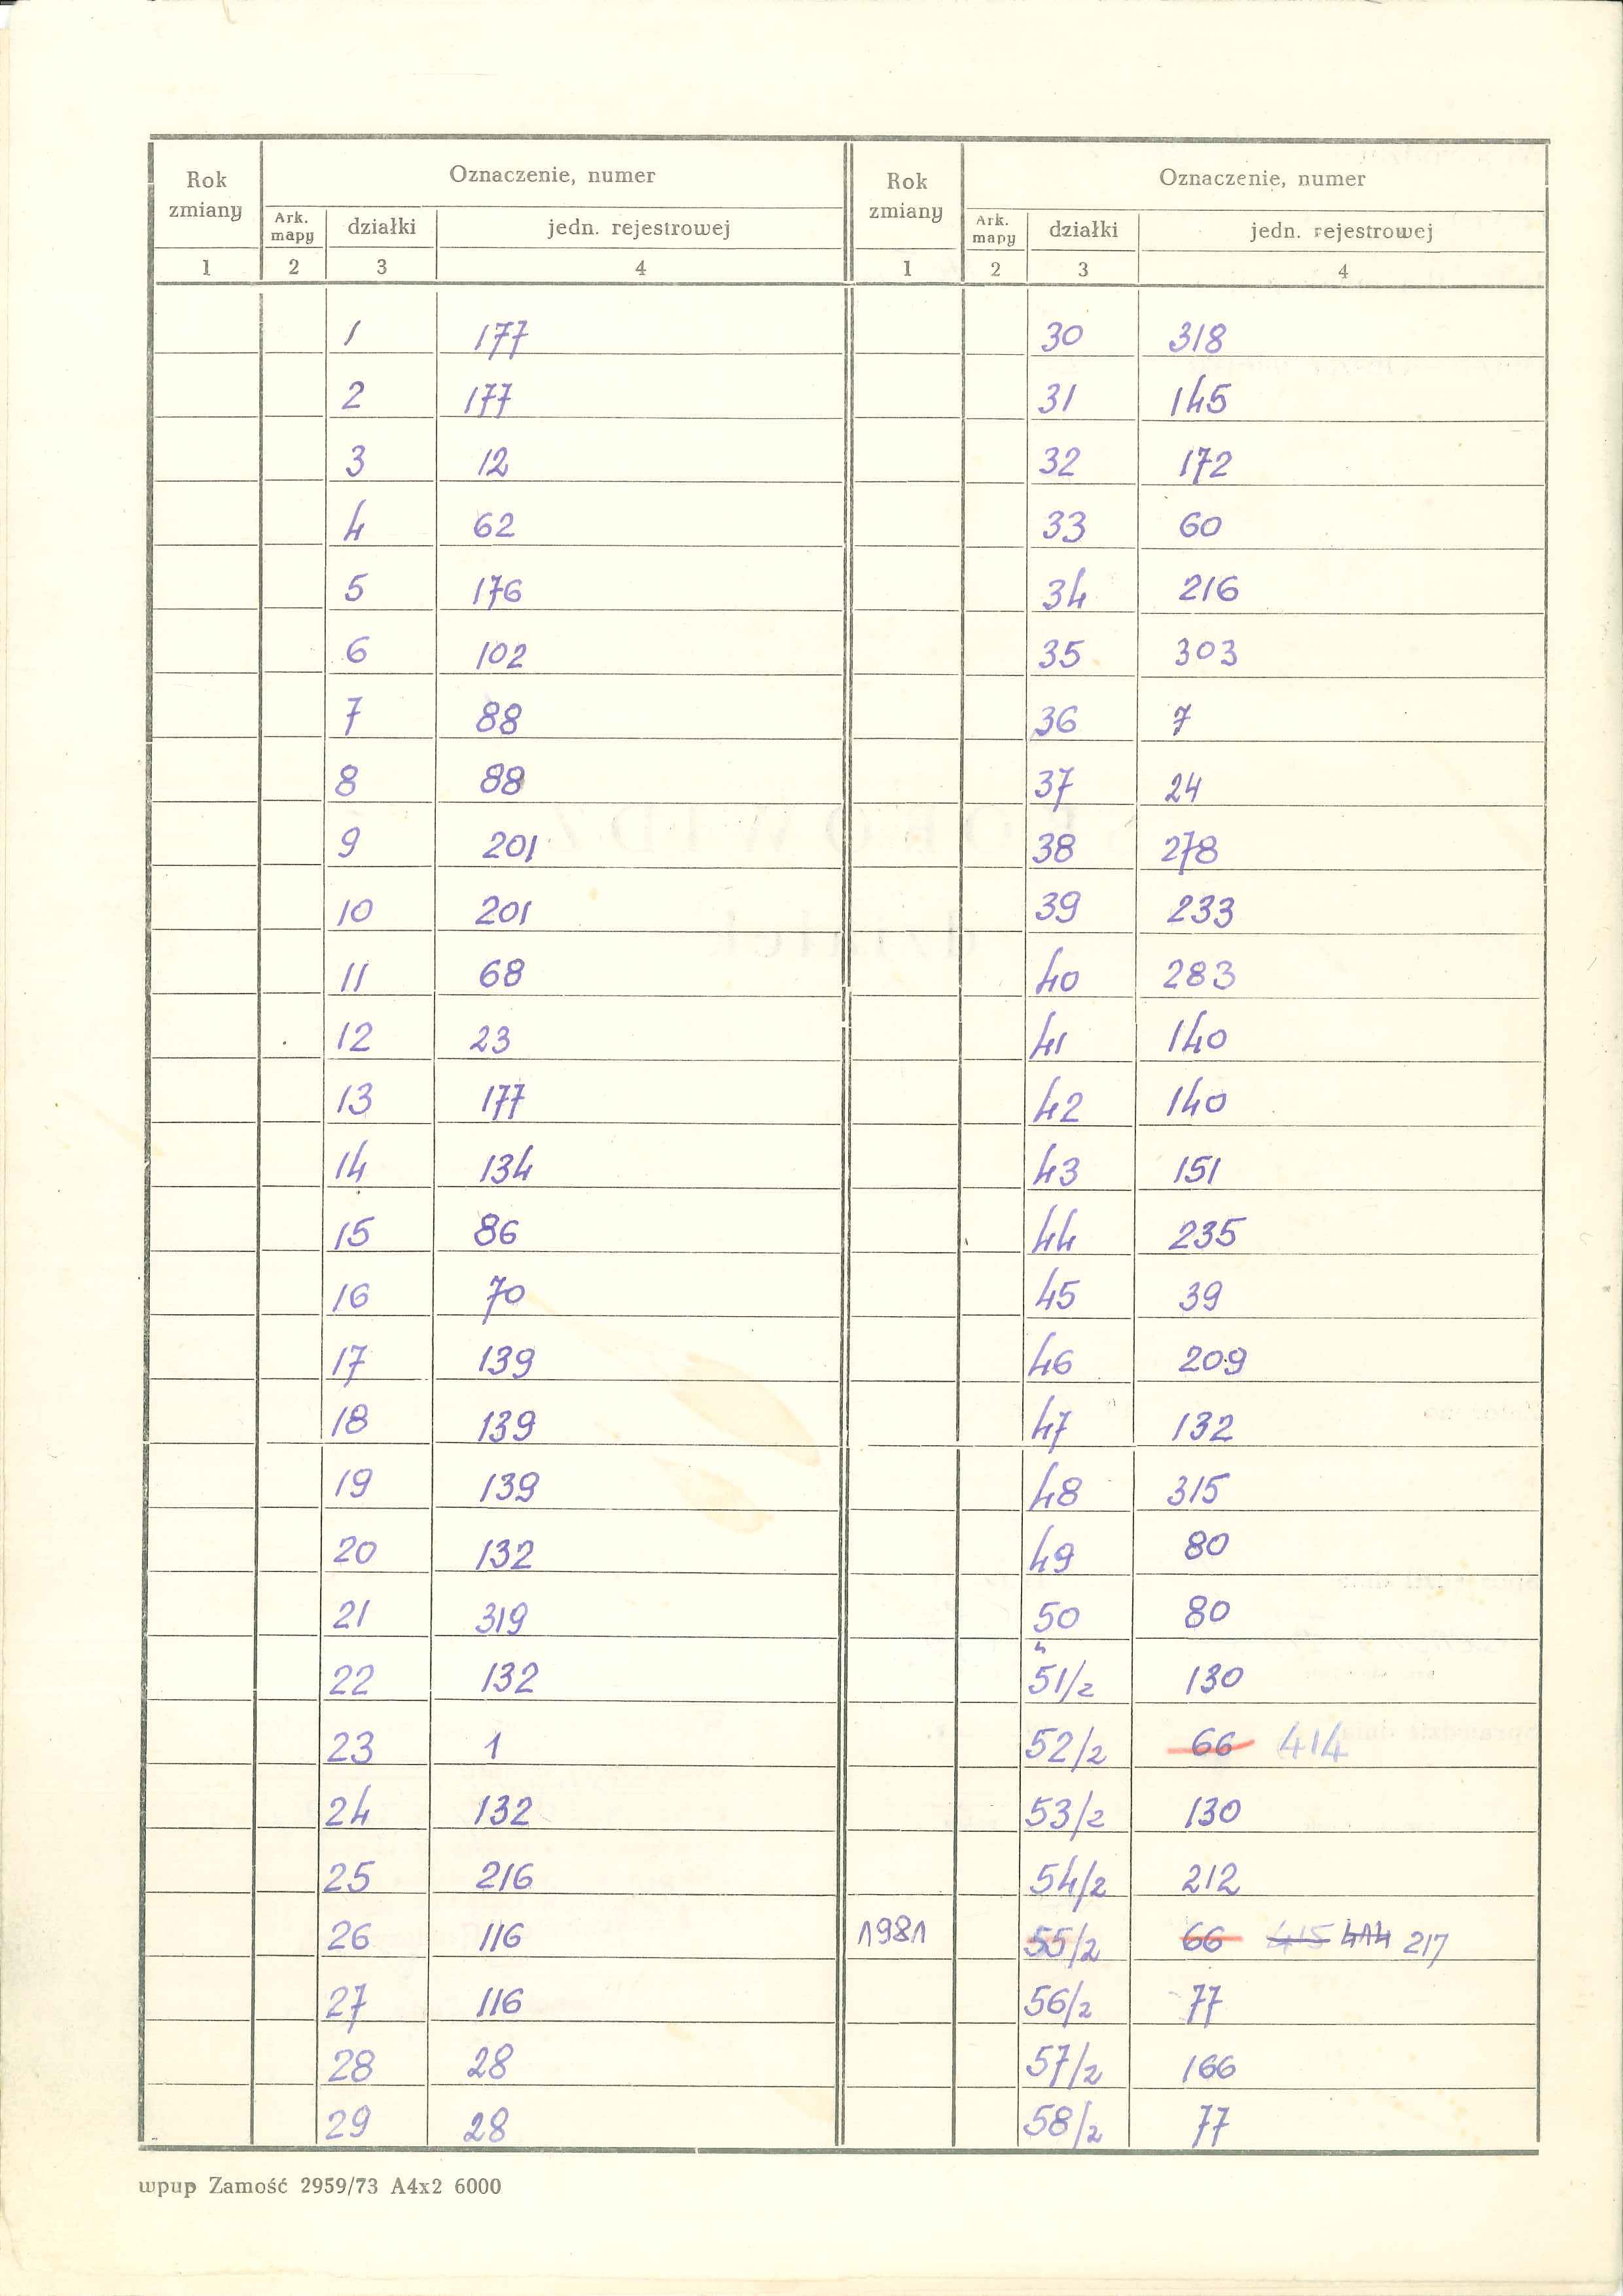 Rok zmiany Oznaczenie, numer Rok zmiany Oznaczenie, numer
Ark. mapy działki jedn. rejestrowej Ark. mapy działki jedn. rejestrowej
1 2 3 4 1 2 3 4
1 177 30 318
2 177 31 145
3 12 32 172
4 62 33 60
5 176 34 216
6 102 35 303
7 88 36 7
8 88 37 24
9 201 38 278
10 201 39 233
11 68 40 283
12 23 41 140
13 177 42 140
14 134 43 151
15 86 44 235
16 70 45 39
17 139 46 209
18 139 47 132
19 139 48 315
20 132 49 80
21 319 50 80
22 132 51/2 130
23 1 52/2 66 414
24 132 53/2 130
25 216 54/2 212
26 116 1981 55/2 66 415 414 217
27 116 56/2 77
28 28 57/2 166
29 28 58/2 77
wpup Zamość 2959/73 A4x2 6000